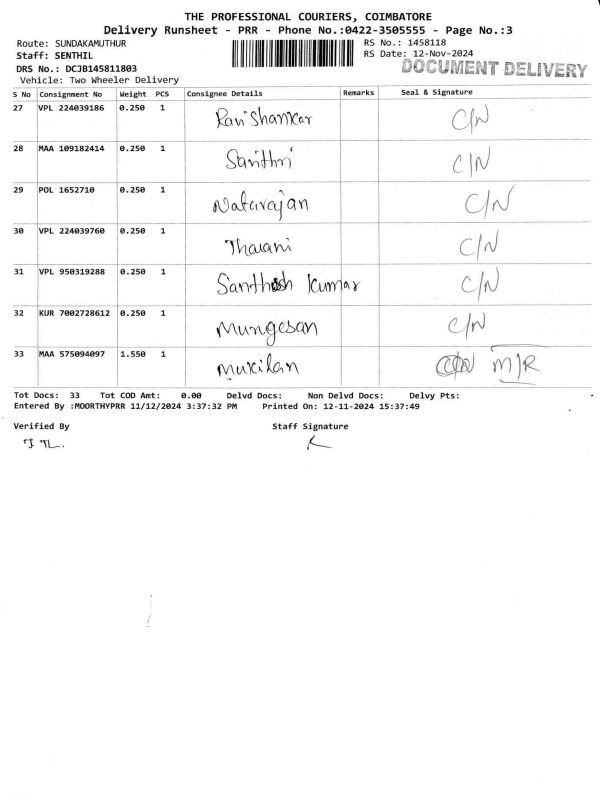 THE PROFESSIONAL COURIERS, COIMBATORE
Delivery Runsheet - PRR - Phone No.:0422-3505555 - Page No.:3
Route: SUNDAKAMUTHUR RS No.: 1458118
Staff: SENTHIL RS Date: 12-Nov-2024
DRS No.: DCJB145811803 DOCUMENT DELIVERY
Vehicle: Two Wheeler Delivery
S No Consignment No Weight PCS Consignee Details Remarks Seal & Signature
27 VPL 224039186 0.250 1 Ravi Shankar C/N
28 MAA 109182414 0.250 1 Santhri C/N
29 POL 1652710 0.250 1 Natarajan C/N
30 VPL 224039760 0.250 1 Tharani C/N
31 VPL 950319288 0.250 1 Santhosh Kumar C/N
32 KUR 7002728612 0.250 1 Murugesan C/N
33 MAA 575094097 1.550 1 Mukilan M/R
Tot Docs: 33 Tot COD Amt: 0.00 Delvd Docs: Non Delvd Docs: Delvy Pts:
Entered By :MOORTHYPRR 11/12/2024 3:37:32 PM Printed On: 12-11-2024 15:37:49
Verified By Staff Signature